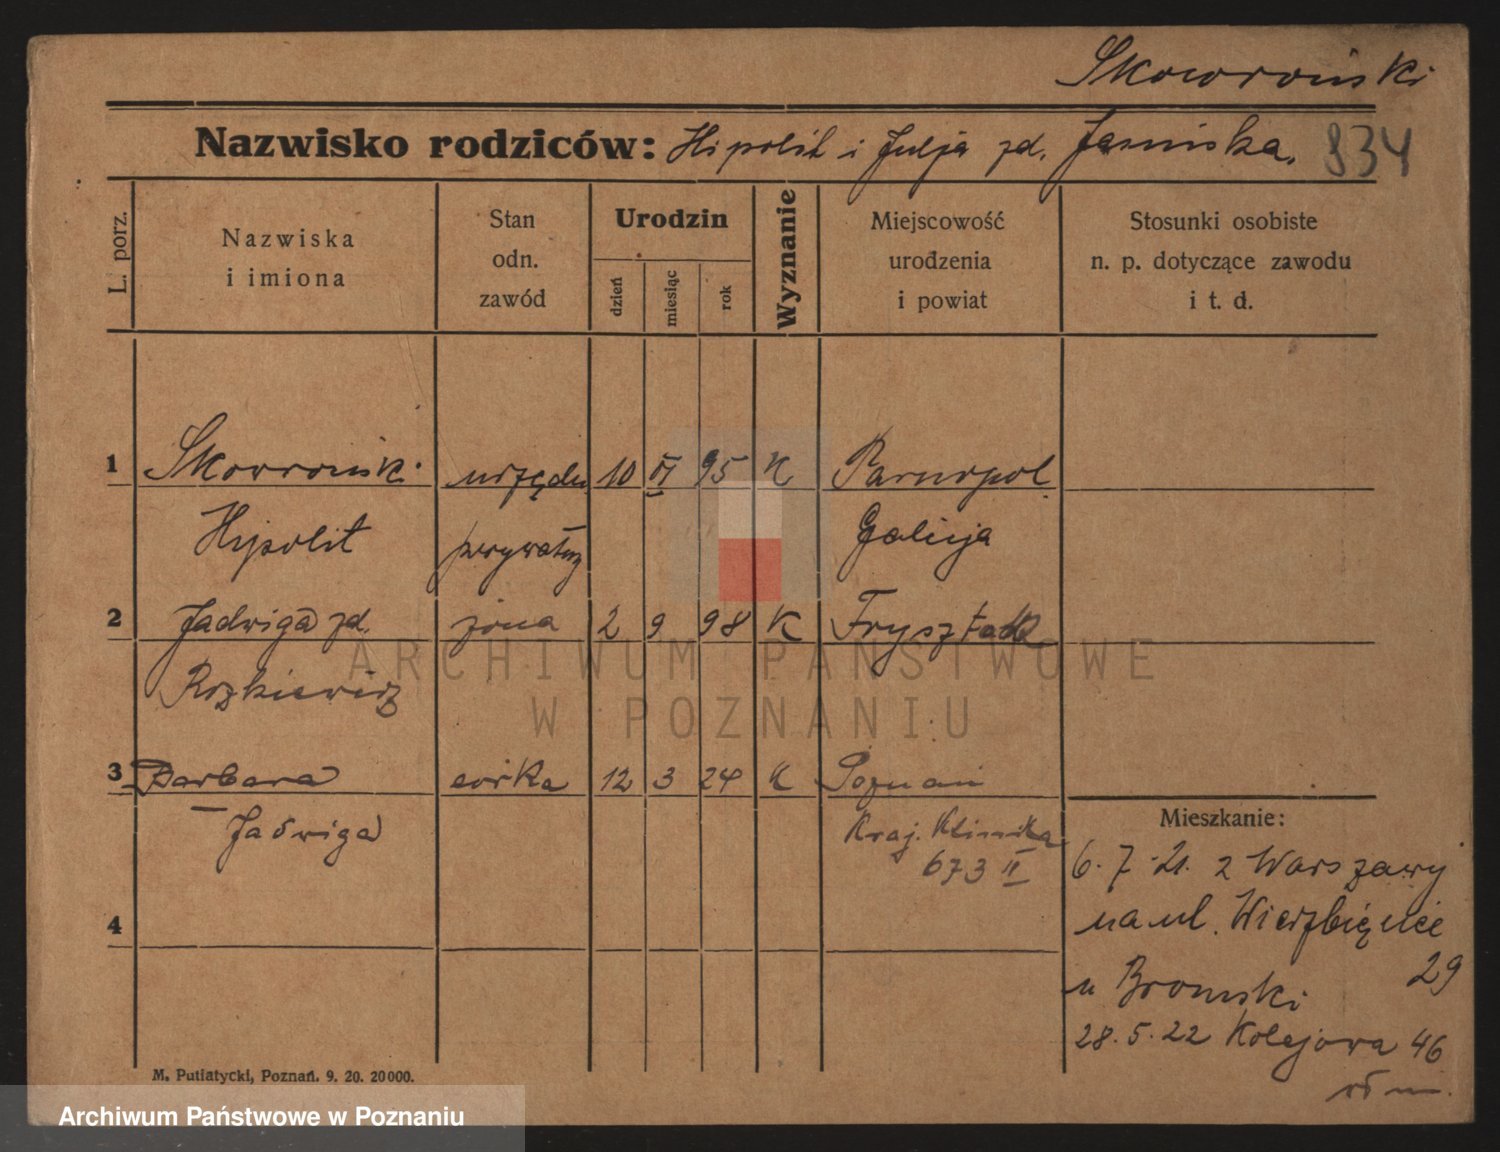 Skowroński
Nazwisko rodziców: Hipolit i Julja zd. Jasińska. 834
L. porz.
Nazwiska i imiona
Stan odn. zawód
Urodzin
dzień
miesiąc
rok
Wyznanie
Miejscowość urodzenia i powiat
Stosunki osobiste n. p. dotyczące zawodu i t. d.
1 Skowroński urzędn. 10 VI 95 K Tarnopol
Hipolit prywatny Galicja
2 Jadwiga zd. żona 2 9 98 K Frysztak
Rozkiewicz
3 Barbara córka 12 3 24 K Poznań
Jadwiga Kraj. Klinika
673 II
4
Mieszkanie:
6. 7. 21. z Warszawy
na ul. Wierzbięcice
29
u Bromski
28. 5. 22 Kolejowa 46
M. Putiatycki, Poznań. 9. 20. 20000.
ARCHIWUM PAŃSTWOWE
W POZNANIU
Archiwum Państwowe w Poznaniu